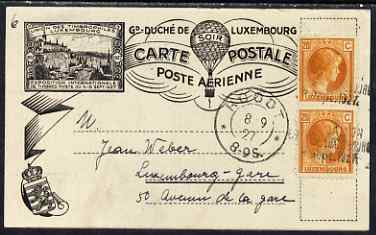 UNION DES TIMBROPHILES
LUXEMBOURG
EXPOSITION INTERNATIONALE
DE TIMBRES-POSTE DU 4-8 SEPT. 1927
Gd-DUCHÉ DE LUXEMBOURG
SOIR
CARTE POSTALE
POSTE AÉRIENNE
8 9
27
8-9S.
M.
Jean Weber
Luxembourg-gare
50 avenue de la gare
20 C
LUXEMBOURG
20 C
LUXEMBOURG